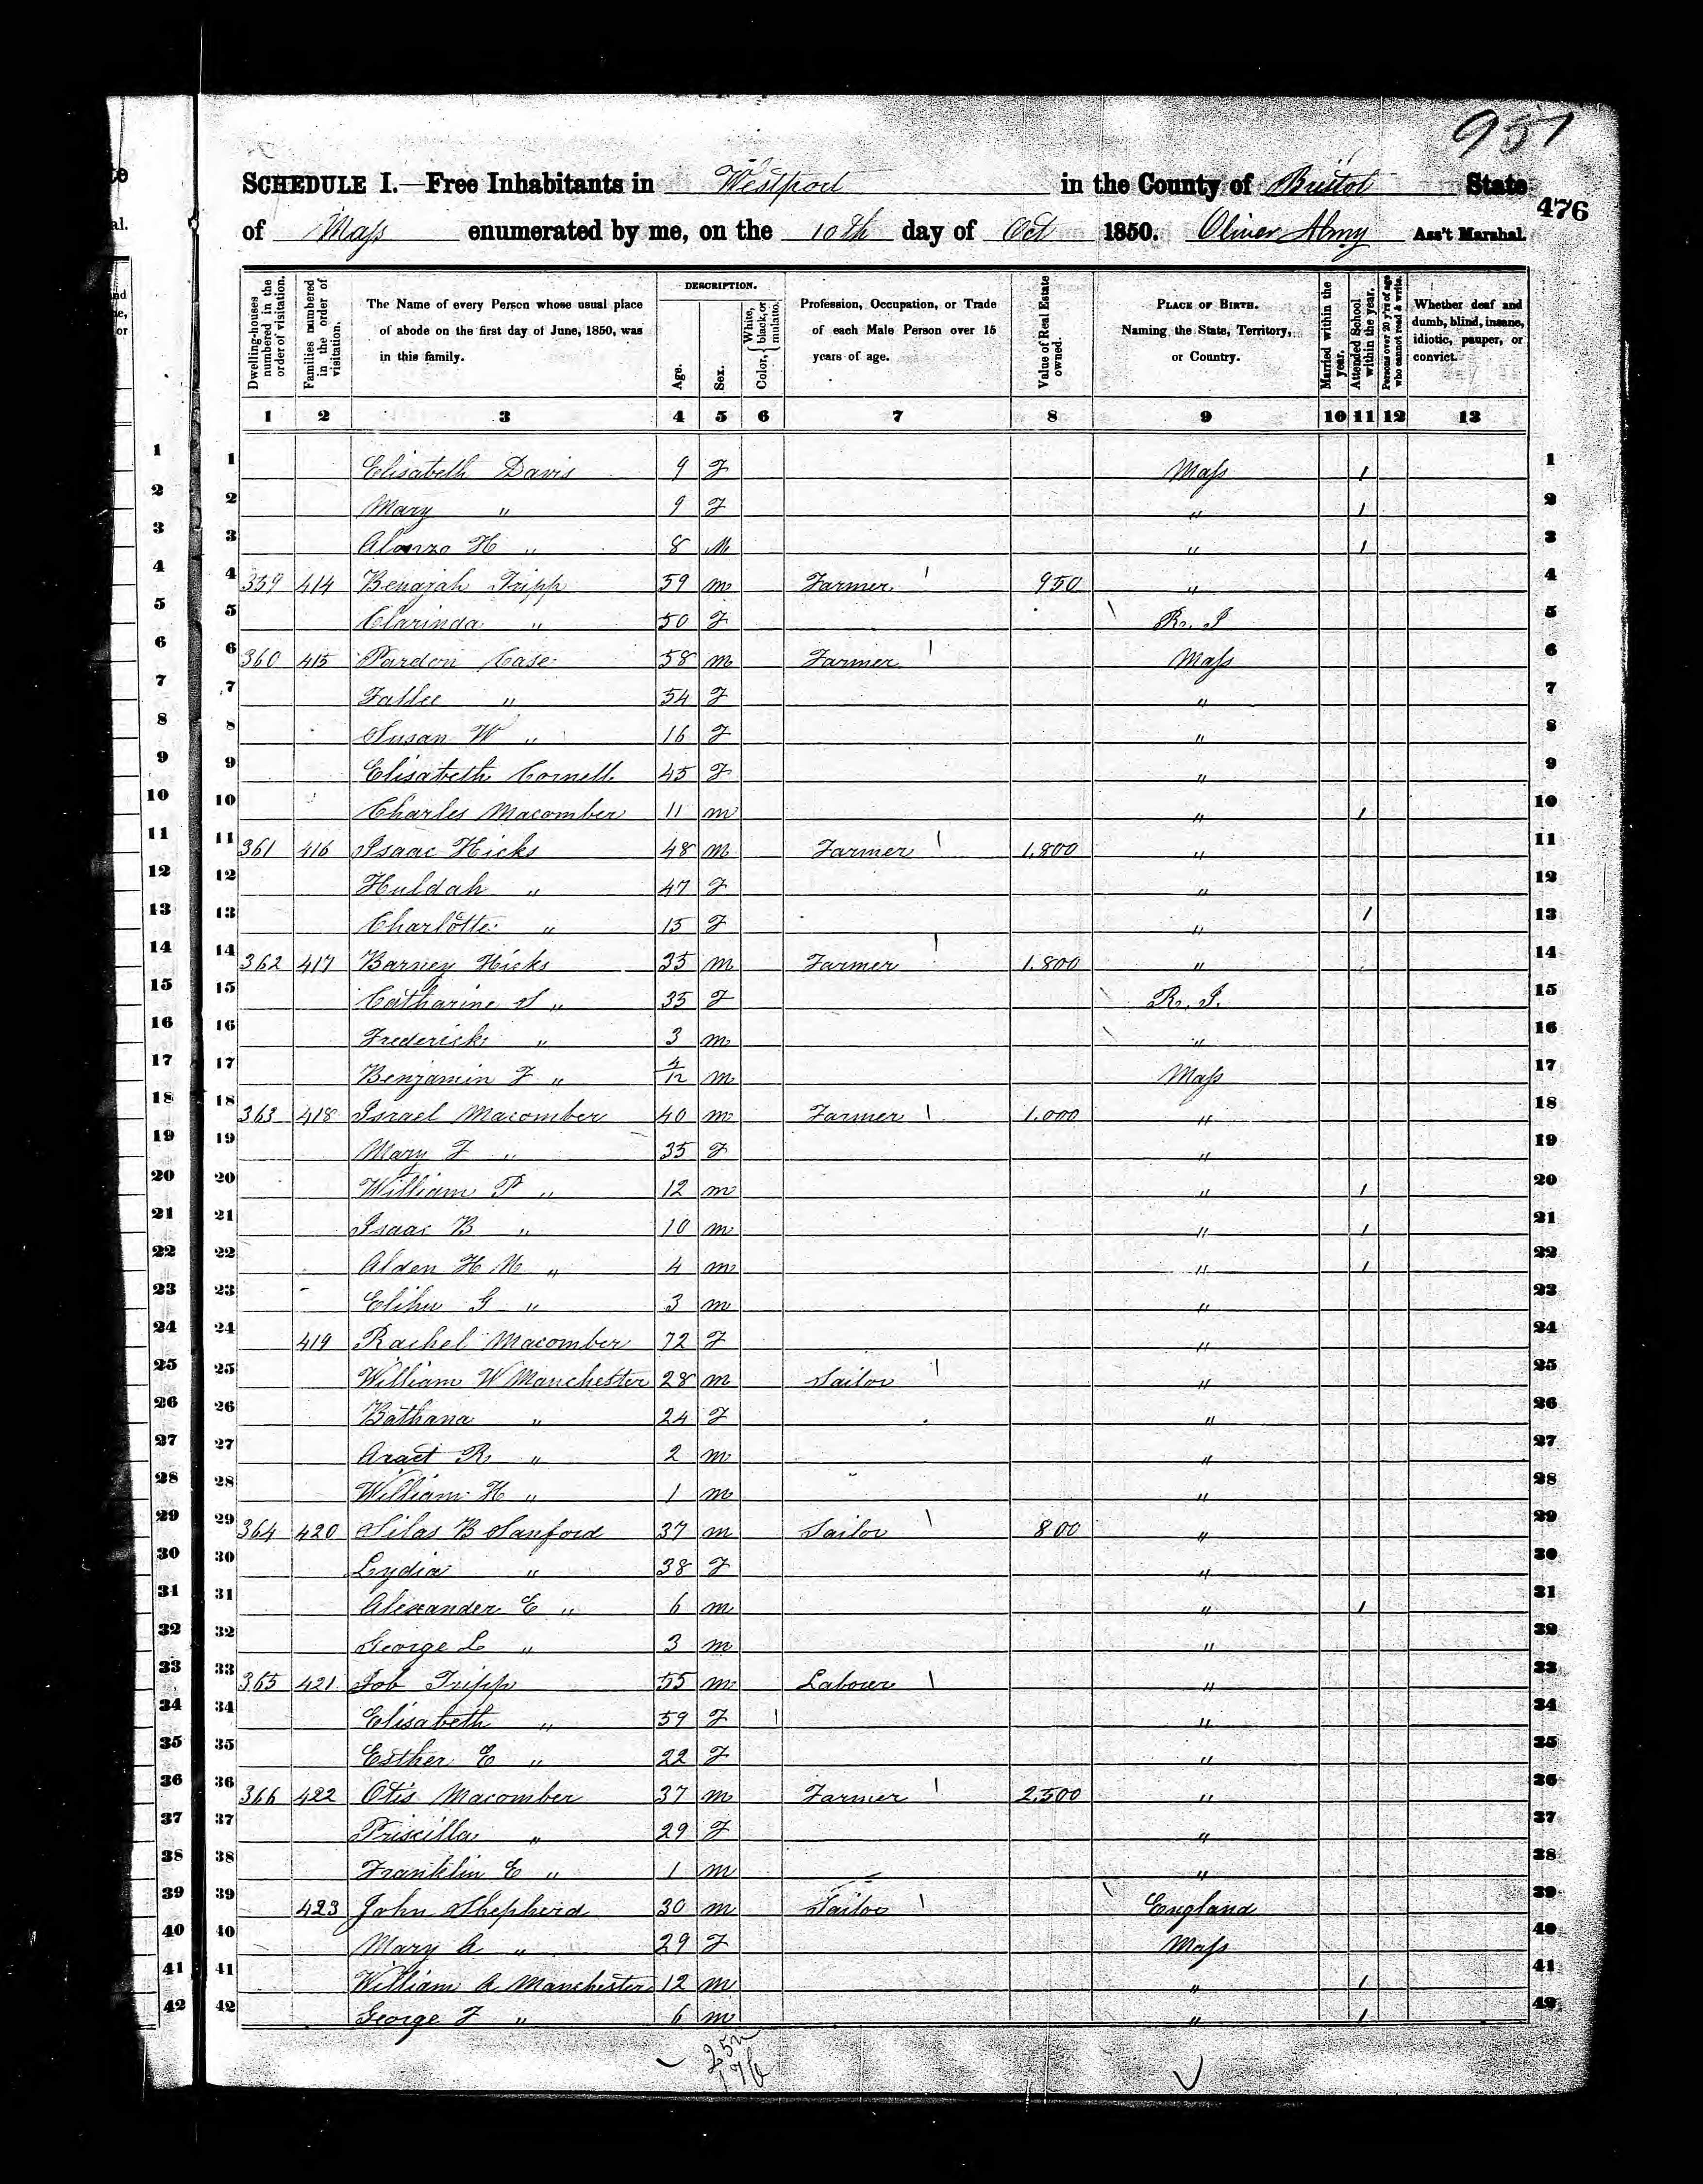 951
SCHEDULE I.—Free Inhabitants in Westport in the County of Bristol State
476
of Mass enumerated by me, on the 10th day of Oct 1850. Oliver Almy Ass't Marshal.
Dwelling-houses numbered in the order of visitation.
Families numbered in the order of visitation.
The Name of every Person whose usual place of abode on the first day of June, 1850, was in this family.
DESCRIPTION.
Age.
Sex.
Color, { White, black, or mulatto.
Profession, Occupation, or Trade of each Male Person over 15 years of age.
Value of Real Estate owned.
PLACE OF BIRTH. Naming the State, Territory, or Country.
Married within the year.
Attended School within the year.
Persons over 20 y'rs of age who cannot read & write.
Whether deaf and dumb, blind, insane, idiotic, pauper, or convict.
1 2 3 4 5 6 7 8 9 10 11 12 13
1 Elisabeth Davis 9 F Mass 1 1
2 Mary " 9 F " 1 2
3 Alonzo H " 8 M " 1 3
4 359 414 Benajah Tripp 59 m Farmer 950 " 4
5 Clarinda " 50 F R. I 5
6 360 415 Pardon Case 58 m Farmer Mass 6
7 " 54 F " 7
8 Susan W " 16 F " 8
9 Elisabeth Cornell 45 F " 9
10 Charles Macomber 11 m " 1 10
11 361 416 Isaac Hicks 48 m Farmer 1,800 " 11
12 Huldah " 47 F " 12
13 Charlotte " 15 F " 1 13
14 362 417 Barney Hicks 35 m Farmer 1.800 " 14
15 Catharine S " 35 F R. I. 15
16 Frederick " 3 m " 16
17 Benjamin F " 4/12 m Mass 17
18 363 418 Israel Macomber 40 m Farmer 1.000 " 18
19 Mary F " 35 F " 19
20 William P " 12 m " 1 20
21 Isaac B " 10 m " 1 21
22 Alden H M " 4 m " 1 22
23 Elihu G " 3 m " 23
24 419 Rachel Macomber 72 F " 24
25 William W Manchester 28 m Sailor " 25
26 Bathana " 24 F " 26
27 R " 2 m " 27
28 William H " 1 m " 28
29 364 420 Silas B Sanford 37 m Sailor 800 " 29
30 Lydia " 38 F " 30
31 Alexander E " 6 m " 1 31
32 George L " 3 m " 32
33 365 421 Job Tripp 55 m Labour " 33
34 Elisabeth " 59 F " 34
35 Esther E " 22 F " 35
36 366 422 Otis Macomber 37 m Farmer 2,500 " 36
37 Priscilla " 29 F " 37
38 Franklin E " 1 m " 38
39 423 John Shepherd 30 m Sailor England 39
40 Mary A " 29 F Mass 40
41 William A Manchester 12 m " 1 41
42 George F " 6 m " 1 42